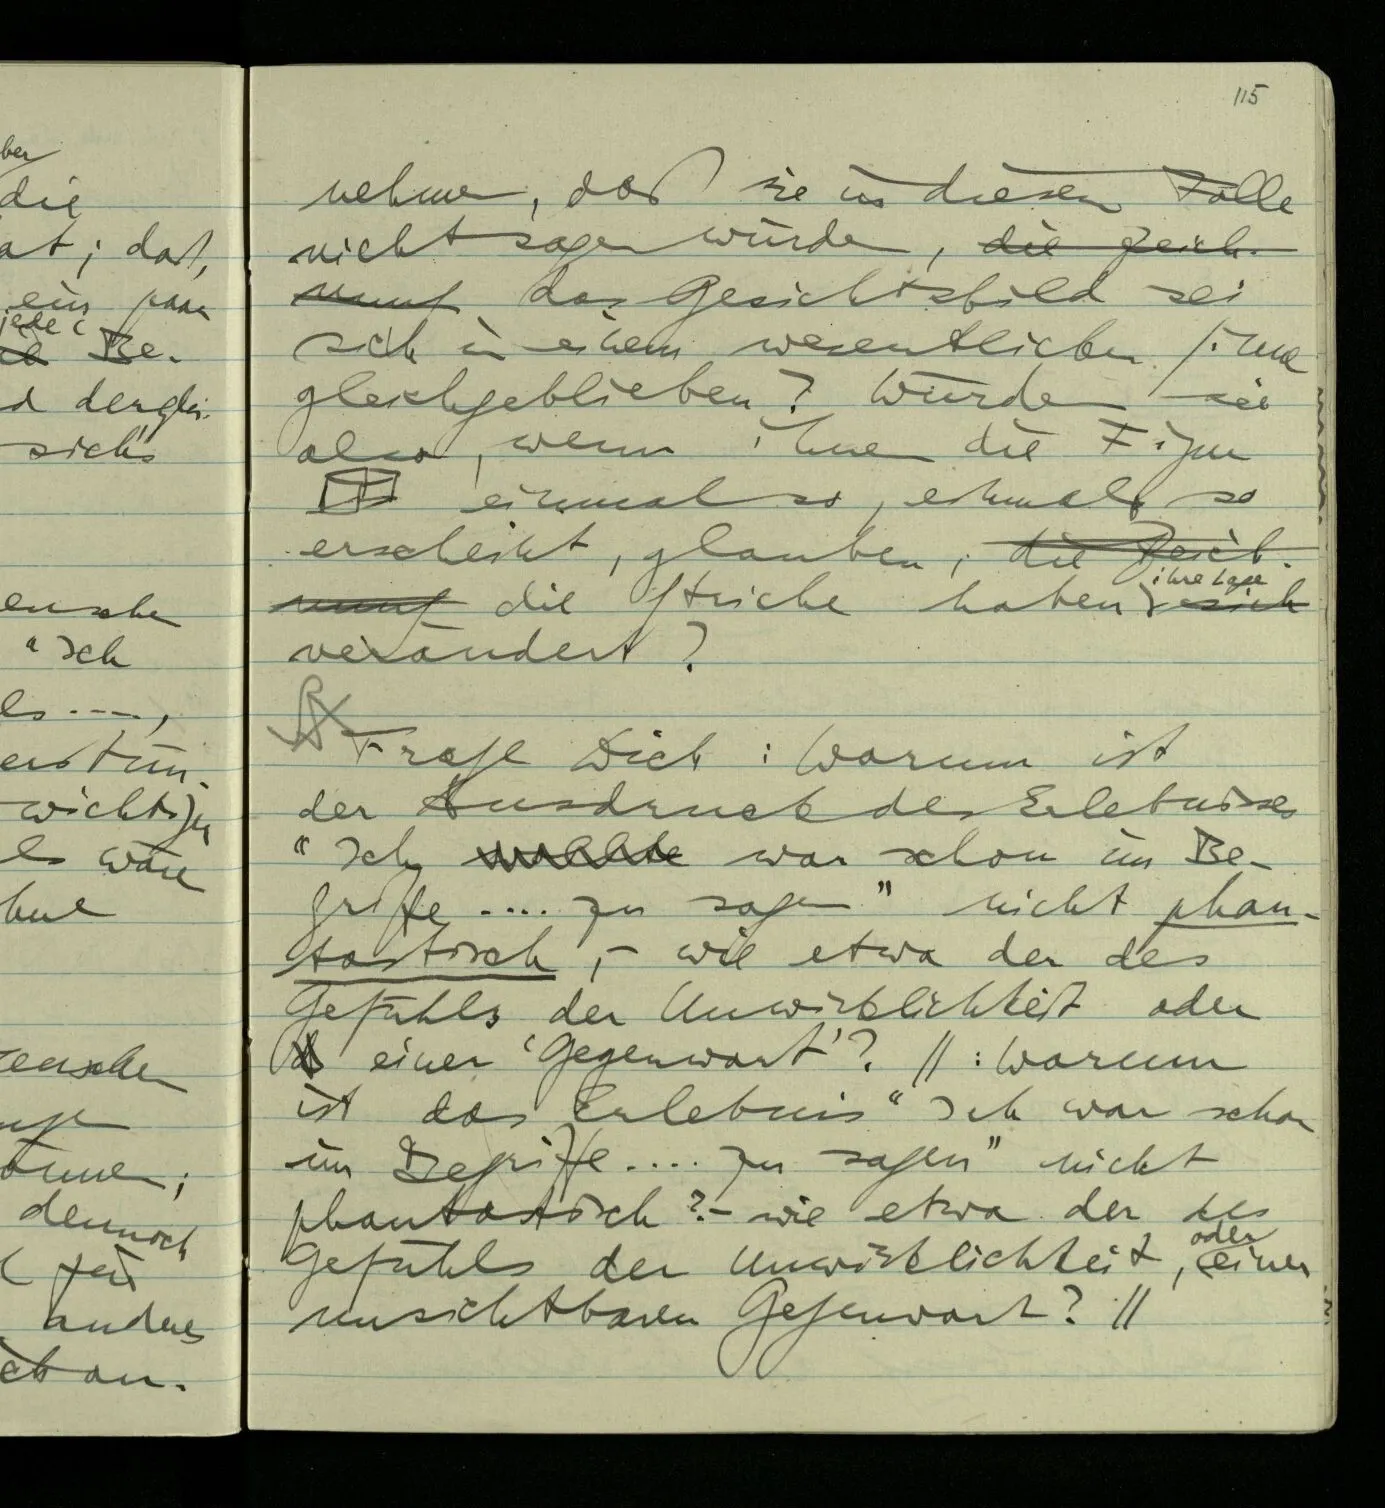 115
ber
die
at; daß,
ein paar
jede
Be-
d derglei-
sich's
ensche
"Ich
ls ----,
wichtig
ls wäre
hne
enschen
dennoch
anders
nehmen, daß sie in diesem Falle
nicht sagen würden, die Zeich-
nung das Gesichtsbild sei
sich in einem wesentlichen Sinne
gleichgeblieben? Würden sie
also, wenn ihnen die Figur
einmal so, einmal so
erscheint, glauben, die Zeich-
nung die Striche haben ihre Lage sich
verändert?
Frage Dich: Warum ist
der Ausdruck des Erlebnisses
"Ich wollte war schon im Be-
griffe .... zu sagen" nicht phan-
tastisch, – wie etwa der des
Gefühls der Unwirklichkeit oder
einer 'Gegenwart'? // : Warum
ist das Erlebnis "Ich war schon
im Begriffe .... zu sagen" nicht
phantastisch? – wie etwa der des
Gefühls der Unwirklichkeit, oder einer
unsichtbaren Gegenwart? //